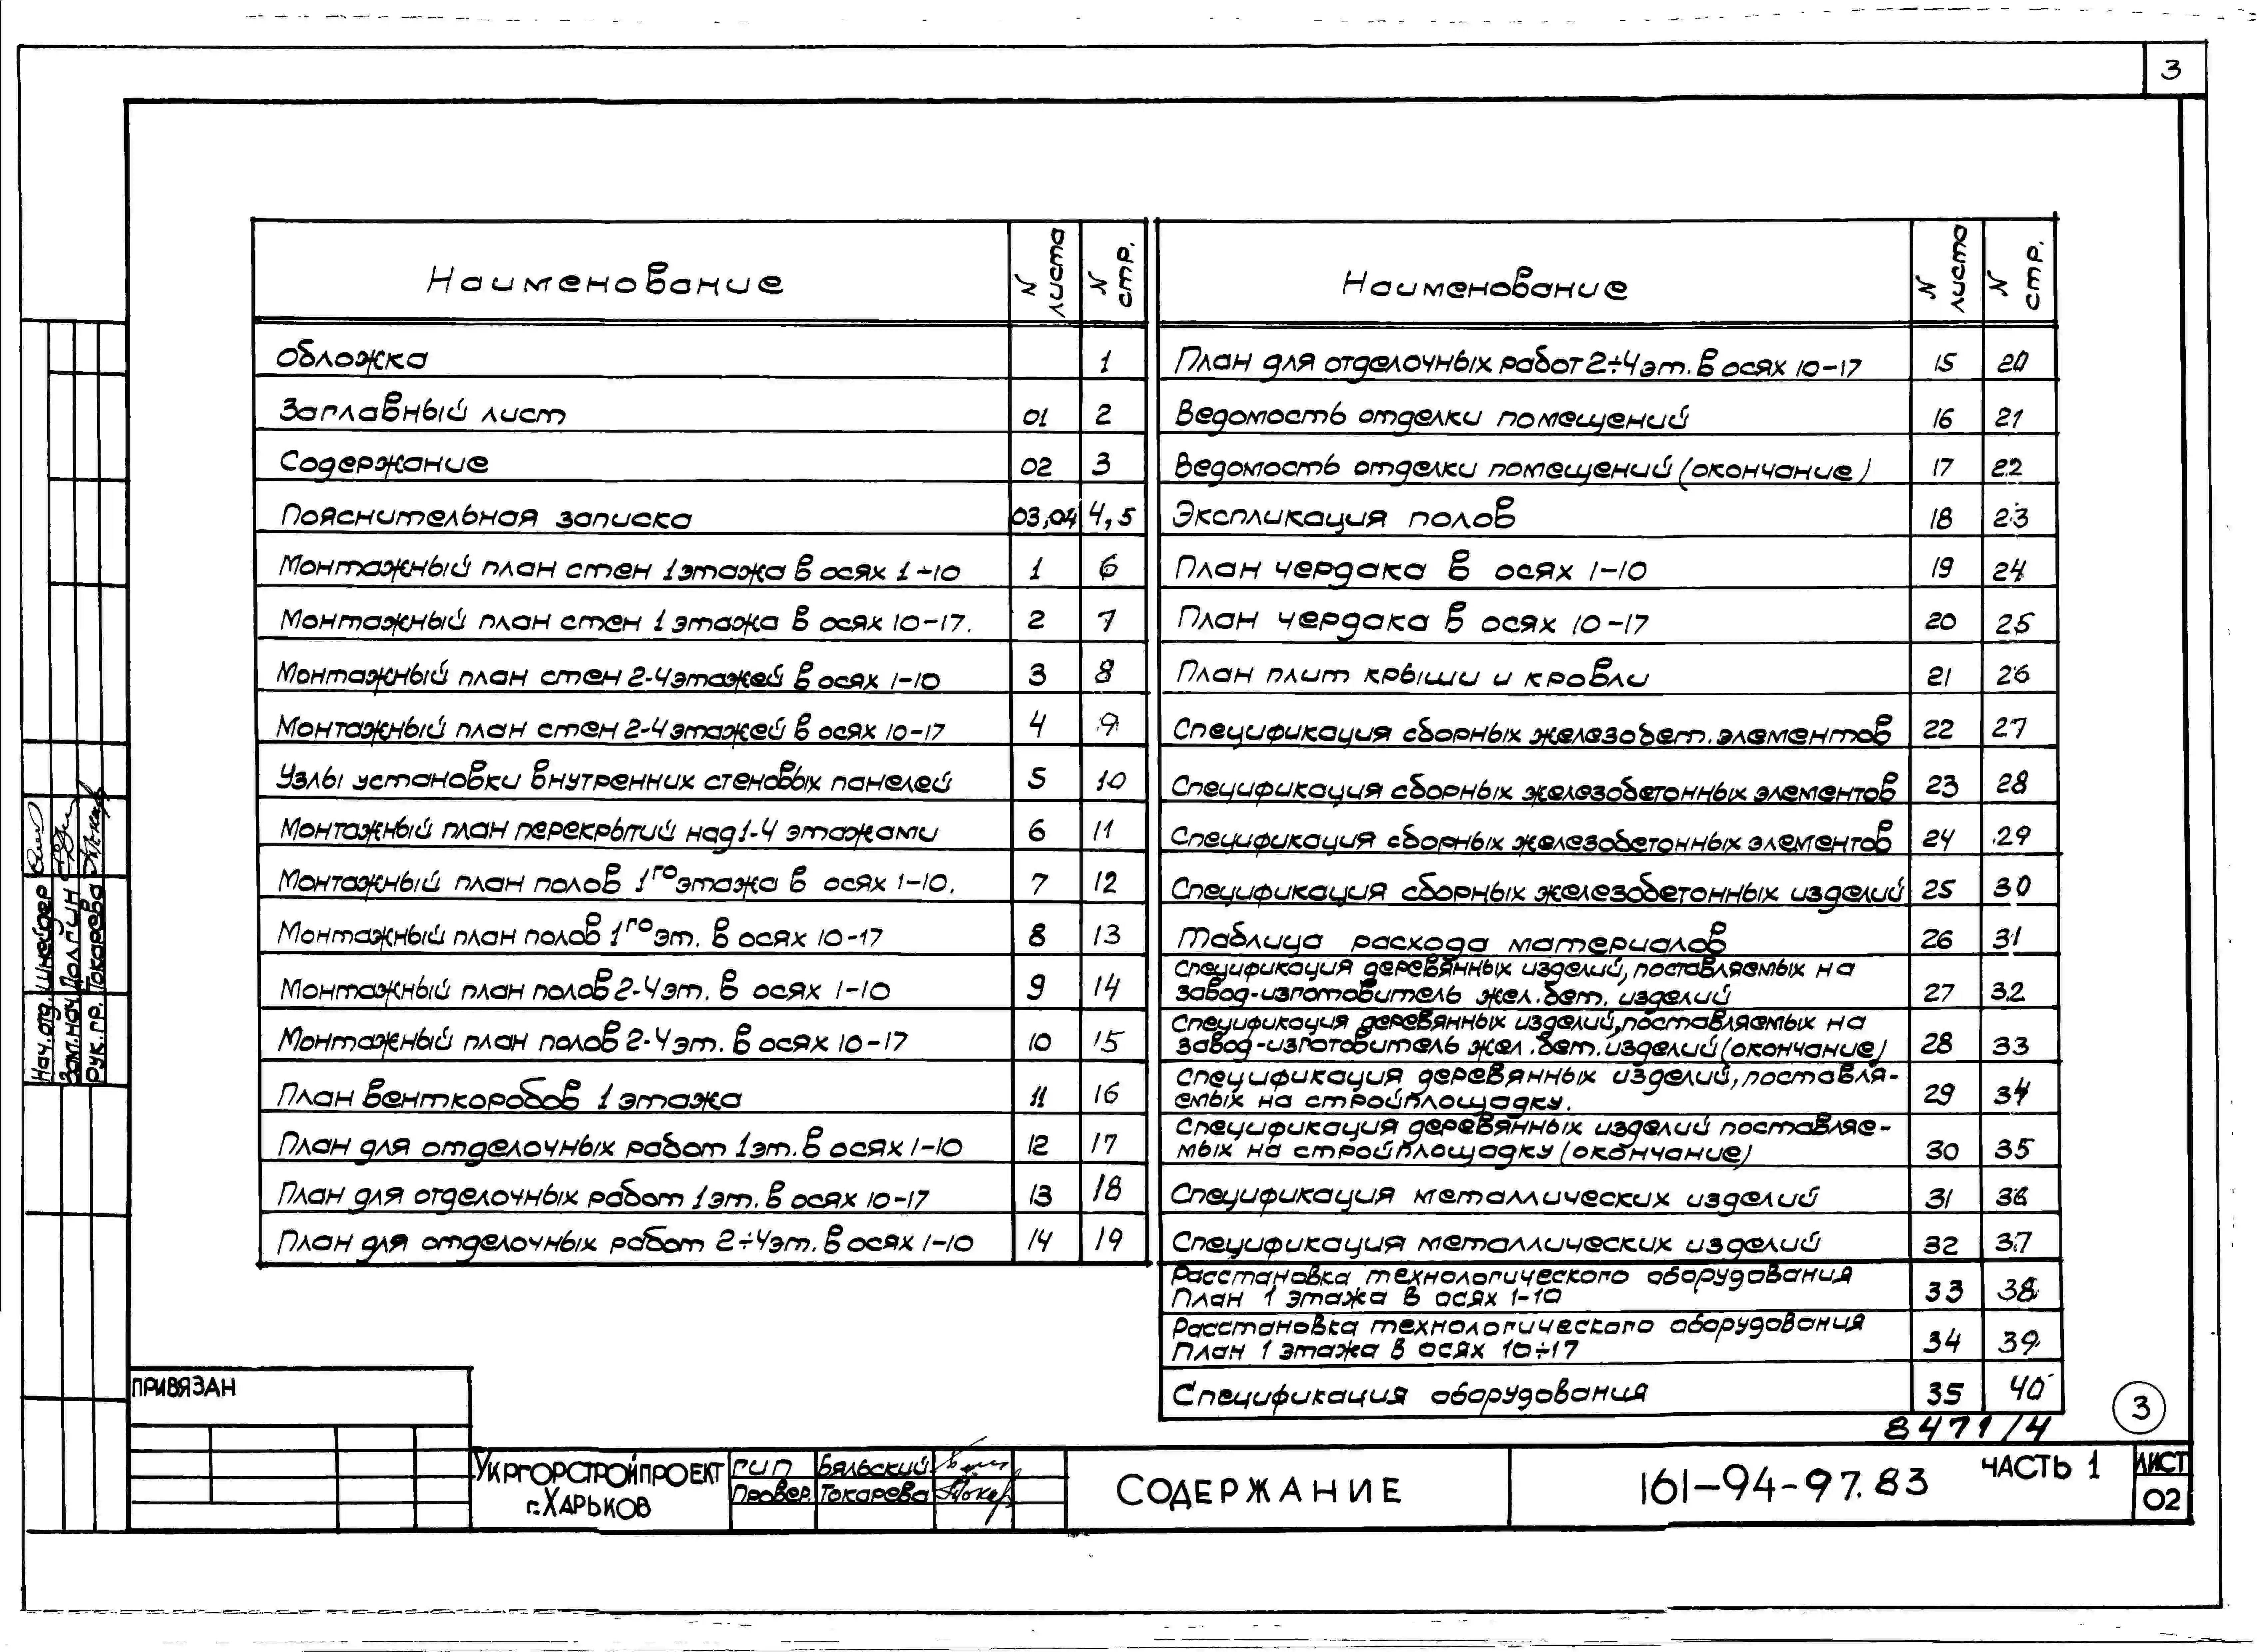 3
Наименование N листа N стр.
Обложка 1
Заглавный лист 01 2
Содержание 02 3
Пояснительная записка 03,04 4,5
Монтажный план стен 1 этажа в осях 1-10 1 6
Монтажный план стен 1 этажа в осях 10-17. 2 7
Монтажный план стен 2-4 этажей в осях 1-10 3 8
Монтажный план стен 2-4 этажей в осях 10-17 4 9
Узлы установки внутренних стеновых панелей 5 10
Монтажный план перекрытий над 1-4 этажами 6 11
Монтажный план полов 1го этажа в осях 1-10. 7 12
Монтажный план полов 1го эт. в осях 10-17 8 13
Монтажный план полов 2-4 эт. в осях 1-10 9 14
Монтажный план полов 2-4 эт. в осях 10-17 10 15
План венткоробов 1 этажа 11 16
План для отделочных работ 1 эт. в осях 1-10 12 17
План для отделочных работ 1 эт. в осях 10-17 13 18
План для отделочных работ 2÷4 эт. в осях 1-10 14 19
Наименование N листа N стр.
План для отделочных работ 2÷4 эт. в осях 10-17 15 20
Ведомость отделки помещений 16 21
Ведомость отделки помещений (окончание) 17 22
Экспликация полов 18 23
План чердака в осях 1-10 19 24
План чердака в осях 10-17 20 25
План плит крыши и кровли 21 26
Спецификация сборных железобет. элементов 22 27
Спецификация сборных железобетонных элементов 23 28
Спецификация сборных железобетонных элементов 24 29
Спецификация сборных железобетонных изделий 25 30
Таблица расхода материалов 26 31
Спецификация деревянных изделий, поставляемых на
завод-изготовитель жел. бет. изделий 27 32
Спецификация деревянных изделий, поставляемых на
завод-изготовитель жел. бет. изделий (окончание) 28 33
Спецификация деревянных изделий, поставля-
емых на стройплощадку. 29 34
Спецификация деревянных изделий поставляе-
мых на стройплощадку (окончание) 30 35
Спецификация металлических изделий 31 36
Спецификация металлических изделий 32 37
Расстановка технологического оборудования
План 1 этажа в осях 1-10 33 38
Расстановка технологического оборудования
План 1 этажа в осях 10÷17 34 39
Спецификация оборудования 35 40
3
8471/4
Нач. отд. Шнейдер
Зам. нач. Долгин
Рук. гр. Токарева
ПРИВЯЗАН
УКРГОРСТРОЙПРОЕКТ
г. ХАРЬКОВ
ГИП Бяльский
Провер. Токарева
СОДЕРЖАНИЕ
161-94-97.83 ЧАСТЬ 1
ЛИСТ
02